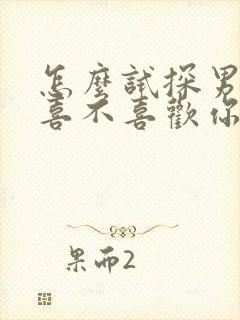 怎麼試探男
喜不喜歡你
果而2